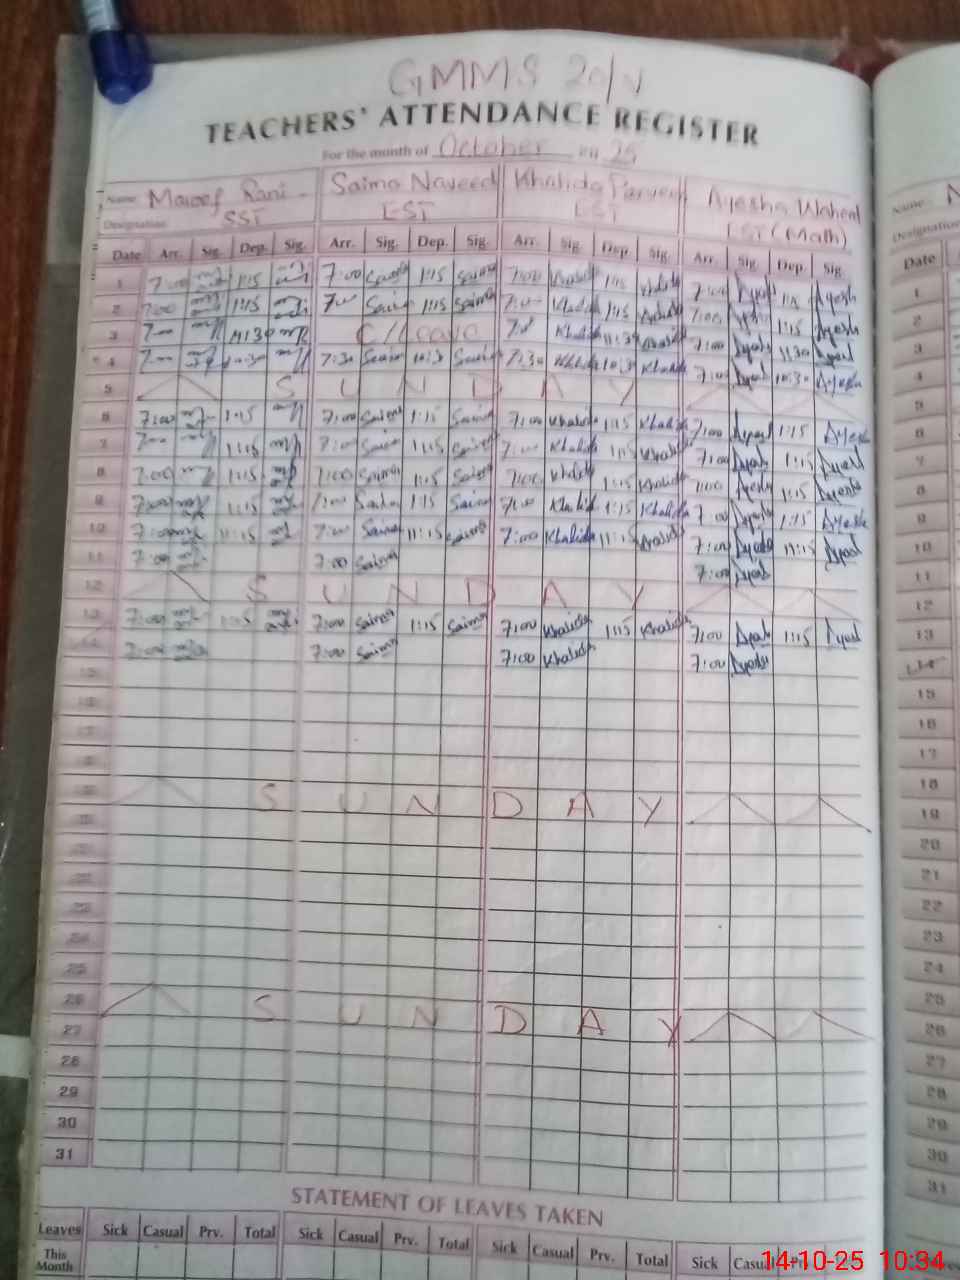 GMMS 20/V
TEACHERS' ATTENDANCE REGISTER
For the month of October 25
Name Maroof Rani Saima Naveed Khalida Parveen Ayesha Waheed
Designation SST EST EST EST (Math)
Date Arr. Sig. Dep. Sig. Arr. Sig. Dep. Sig. Arr. Sig. Dep. Sig. Arr. Sig. Dep. Sig.
1 7:00 1:15 7:00 Saima 1:15 Saima 7:00 Khalida 1:15 Khalida 7:00 Ayesh 1:15 Ayesh
2 7:00 1:15 7:00 Saima 1:15 Saima 7:00 Khalida 1:15 Khalida 7:00 1:15 Ayesh
3 7:00 11:30 C/Leave 7:00 Khalid 11:30 Khalida 7:00 Ayesh 11:30 Ayesh
4 7:00 10:30 7:30 Saima 10:30 Saima 7:30 Khalida 10:30 Khalida 7:00 Ayesh 10:30 Ayesha
5 S U N D A Y
6 7:00 1:15 7:00 Saima 1:15 Saima 7:00 Khalid 1:15 Khalida 7:00 Ayesh 1:15 Ayesh
7 7:00 1:15 7:00 Saima 1:15 Saima 7:00 Khalid 1:15 Khalida 7:00 Ayesh 1:15 Ayesh
8 7:00 1:15 7:00 Saima 1:15 Saima 7:00 Khalid 1:15 Khalida 7:00 Ayesha 1:15 Ayesha
9 7:00 1:15 7:00 Saima 1:15 Saima 7:00 Khalid 1:15 Khalida 7:00 Ayesha 1:15 Ayesh
10 7:00 11:15 7:00 Saima 11:15 Saima 7:00 Khalida 11:15 Khalida 7:00 Ayesha 11:15 Ayesh
11 7:00 7:00 Saima 7:00 Ayesh
12 S U N D A Y
13 7:00 1:15 7:00 Saima 1:15 Saima 7:00 Khalida 1:15 Khalida 7:00 Ayesh 1:15 Ayesh
14 7:00 7:00 Saima 7:00 Khalida 7:00 Ayesha
15
16
17
18
19 S U N D A Y
20
21
22
23
24
25
26 S U N D A Y
27
28
29
30
31
STATEMENT OF LEAVES TAKEN
Leaves Sick Casual Prv. Total Sick Casual Prv. Total Sick Casual Prv. Total Sick
This
Month
Name
Designation
Date
1
2
3
4
5
6
7
8
9
10
11
12
13
14
15
16
17
18
19
20
21
22
23
24
25
26
27
28
29
30
31
14-10-25 10:34